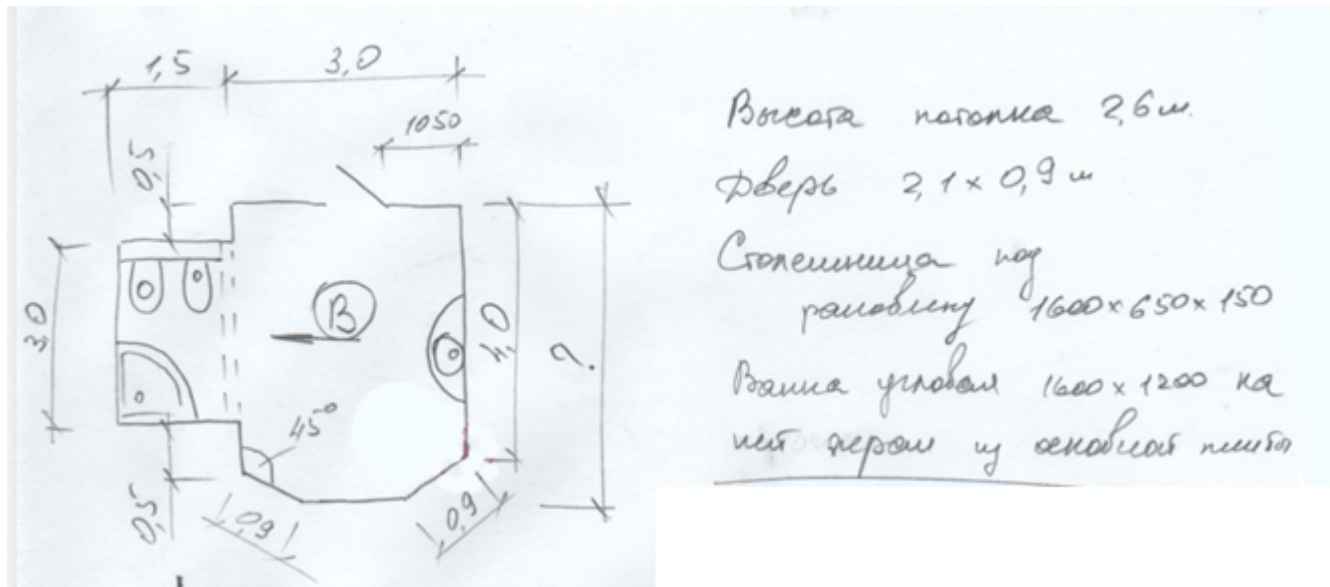 1,5
3,0
1050
0,5
3,0
В
4,0
?
45°
0,5
0,9
0,9
Высота потолка 2,6 м.
Дверь 2,1 x 0,9 м
Столешница под
раковину 1600 x 650 x 150
Ванна угловая 1600 x 1200 на
ней экран из основной плиты